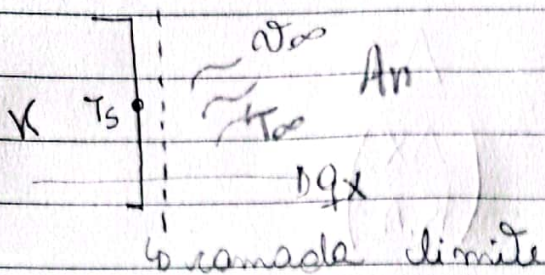 v∞
K Ts T∞ Ar
qx
↳ camada limite